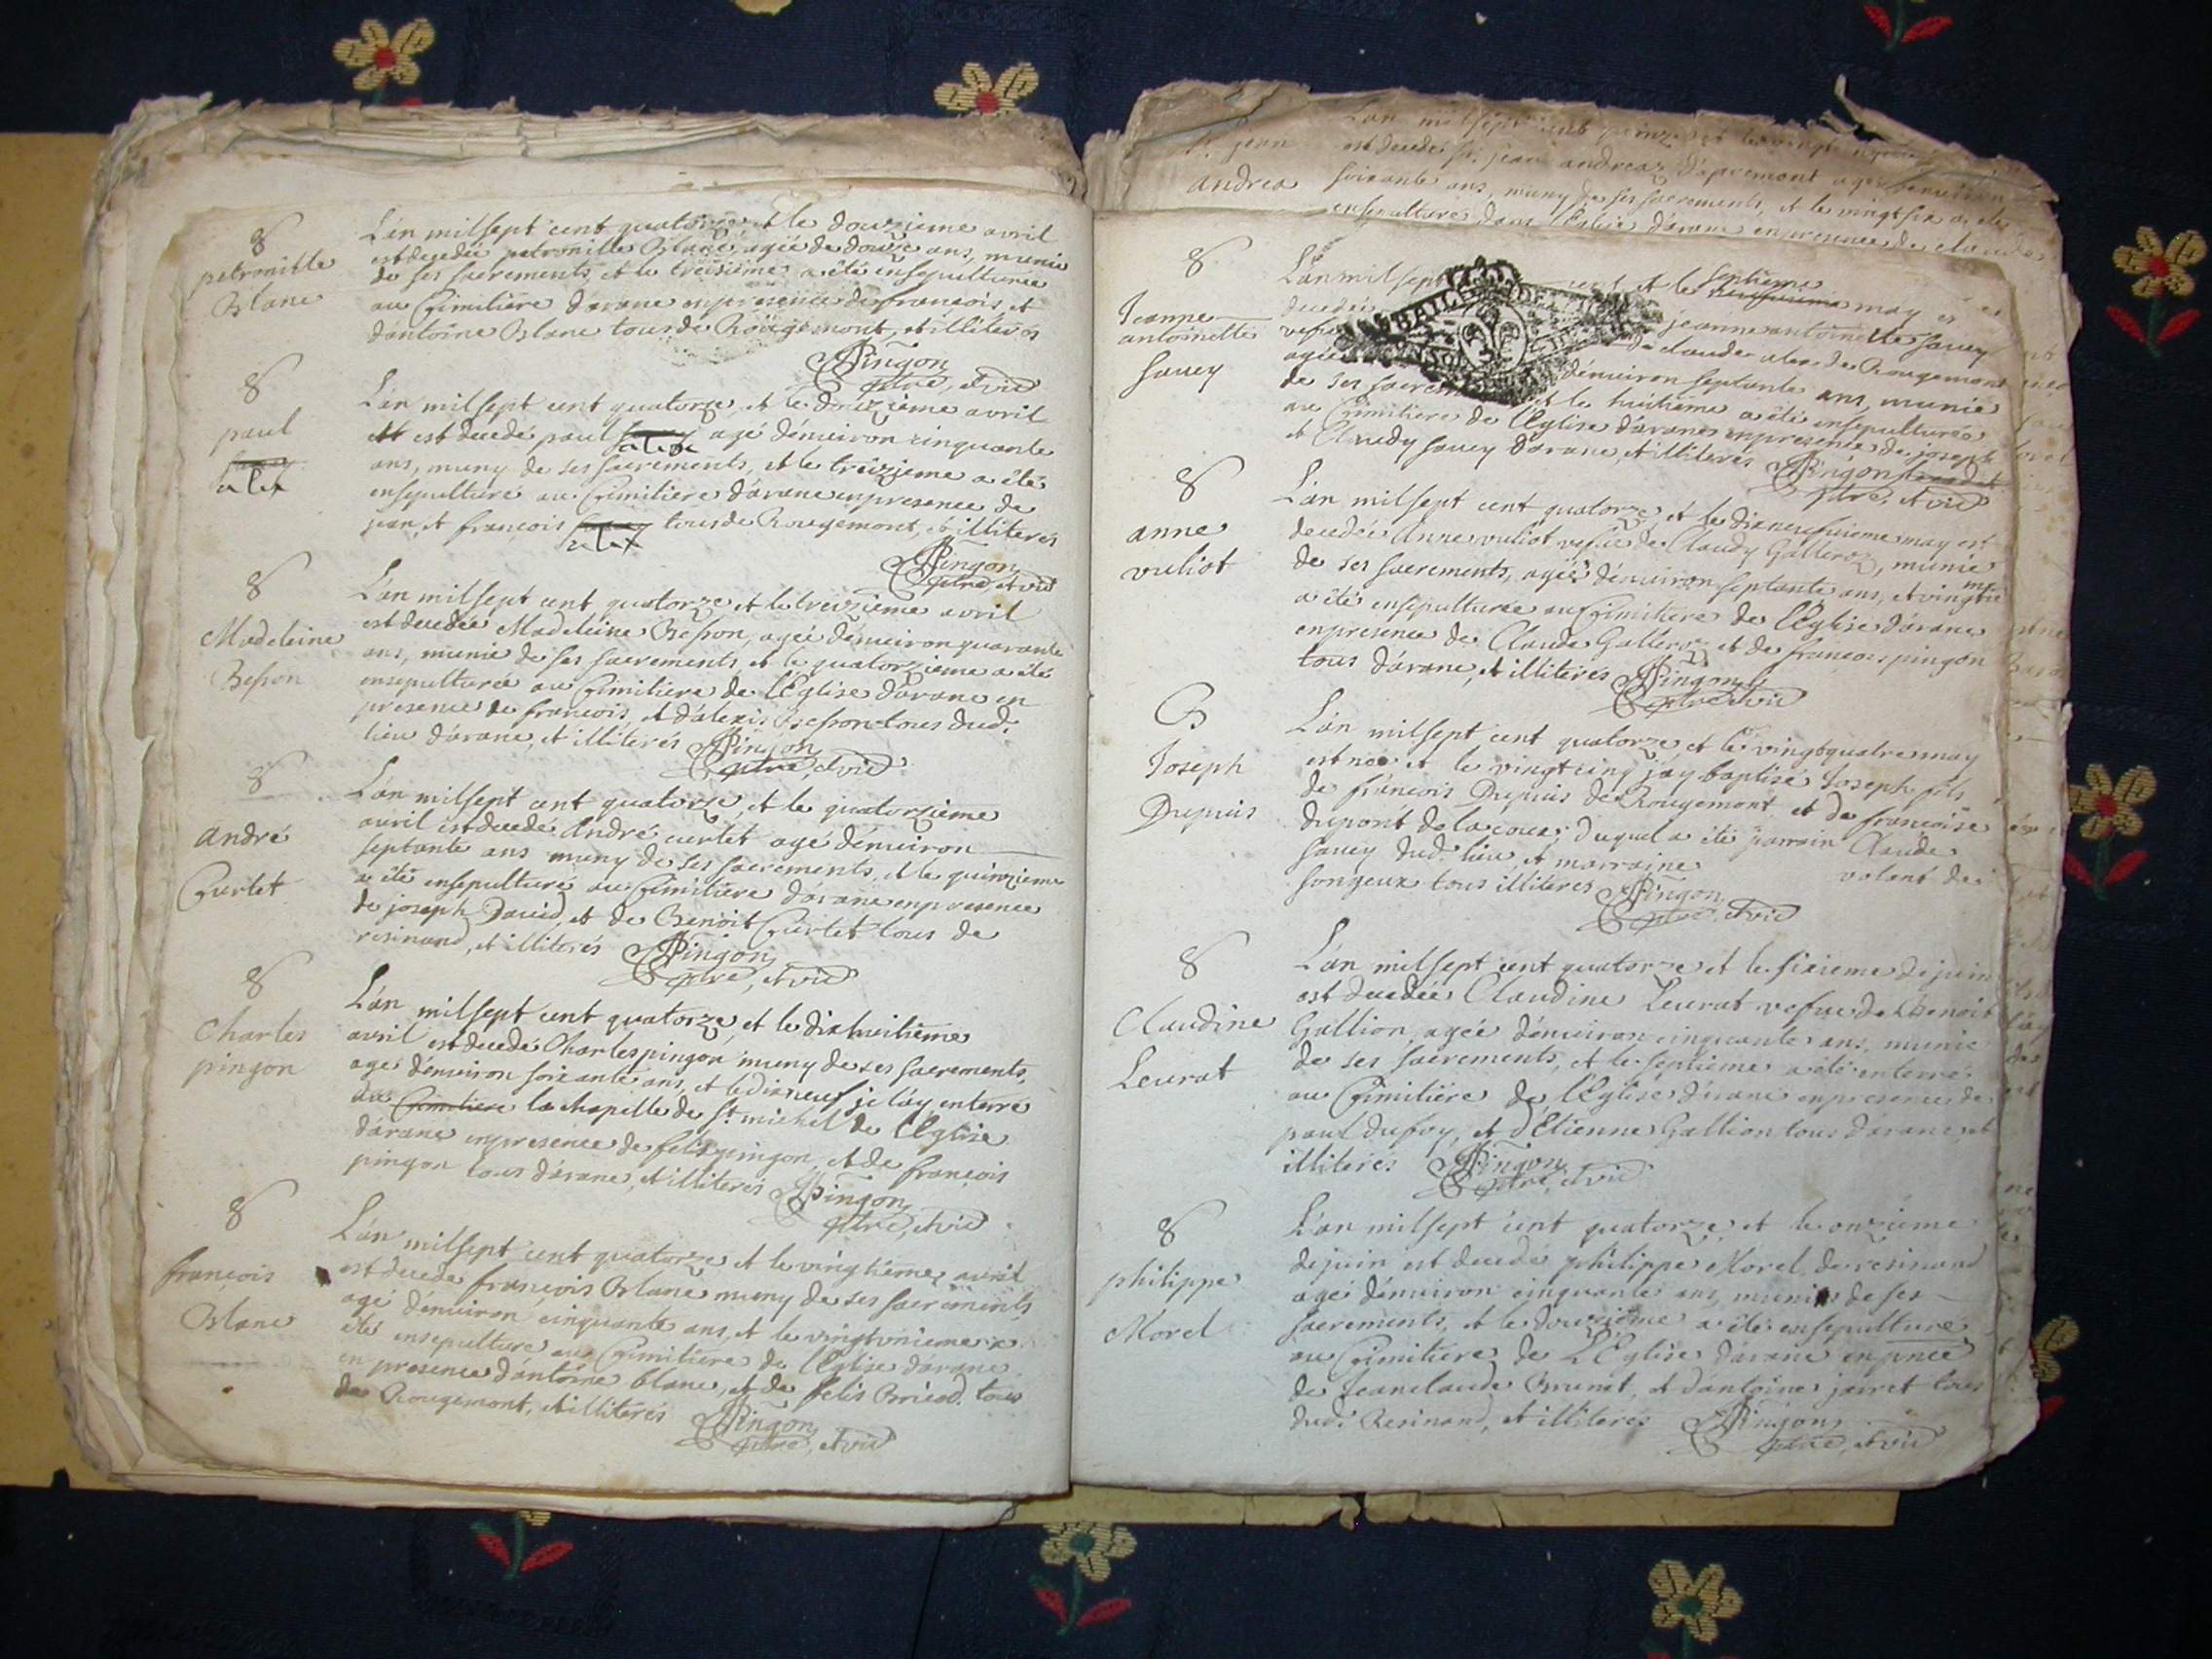 8
petronille
Blanc
L'an milsept cent quatorze et le douzieme avril
est decedée petronille Blanc, agée de douze ans, munie
de ses sacrements et le treisieme a été ensepulturée
au Cimitiere d'arane en presence de françois, et
d'antoine Blanc tous de Rougemont, et illiterés
Pingon
ptre, et vic
8
paul
alex
L'an milsept cent quatorze, et le douzieme avril
est decedé paul alex agé d'enuiron cinquante
ans, muny de ses sacrements, et le treizieme a été
ensepulturé au Cimitiere d'arane en presence de
jean, et françois alex tous de Rougemont, et illiterés
Pingon
ptre, et vic
8
Madeleine
Besson
L'an milsept cent quatorze, et le treizieme avril
est decedée Madeleine Besson, agée d'enuiron quarante
ans, munie de ses sacrements, et le quatorzieme a été
ensepulturée au Cimitiere de l'Eglise d'arane en
presence de françois, et d'alexis Besson tous dud.
lieu d'arane, et illiterés Pingon
ptre, et vic
8
André
Curtet
L'an milsept cent quatorze, et le quatorzieme
avril est decedé André curtet agé d'enuiron
septante ans muny de ses sacrements, et le quinzieme
a été ensepulturé au Cimitiere d'arane en presence
de joseph David, et de Benoit Curtet tous de
resinand, et illiterés Pingon
ptre, et vic
8
Charles
pingon
L'an milsept cent quatorze, et le dixhuitieme
avril est decedé Charles pingon muny de ses sacrements,
agé d'enuiron soixante ans, et le dixneuf je l'ay enterré
da Cimitiere la chapelle de St. michel de l'Eglise
d'arane en presence de felix pingon, et de françois
pingon tous d'arane, et illiterés Pingon
ptre, et vic
8
françois
Blanc
L'an milsept cent quatorze et le vingtieme avril
est decedé françois Blanc muny de ses sacrements
agé d'enuiron cinquante ans, et le vingtunieme a
été ensepulturé au Cimitiere de l'Eglise d'arane
en presence d'antoine blanc, et de felix Bricod. tous
de Rougemont, et illiterés Pingon
ptre, et vic
St. jean
andrea
L'an milsept cent et le vingt
est decedé Sr. jean andrea d'apremont agé d'enuiron
soixante ans, muny de ses sacrements, et le vingt six a été
ensepulturé dans l'Eglise d'arane en presence de claude
8
Jeanne
antoinette
Sauey
L'an milsept cent et le septieme may est
decedée jeanne antoinette Sauey
vefue de claude alex de Rougemont
agée d'enuiron septante ans, munie
de ses sacrements et le huitieme a été ensepulturée
au Cimitiere de l'Eglise d'arane en presence de joseph
et Claudy sauey d'arane, et illiterés Pingon
ptre, et vic
8
anne
vuliot
L'an milsept cent quatorze, et le dixneufuieme may est
decedée Anne vuliot vefue de Claudy Galleroz, munie
de ses sacrements, agée d'enuiron septante ans, et vingtieme
a été ensepulturée au Cimitiere de l'Eglise d'arane
en presence de Claude Galleroz et de françois pingon
tous d'arane, et illiterés Pingon
ptre, et vic
B
Joseph
Dupuis
L'an milsept cent quatorze, et le vingtquatre may
est née et le vingtcinq j'ay baptisé Joseph fils
de françois Dupuis de Rougemont et de françoise
dupont de la coux; duquel a été parrain Claude
sauey dud. lieu, et marraine volant de
songeux tous illiterés Pingon
ptre, et vic
8
Claudine
Leurat
L'an milsept cent quatorze et le sixieme de juin
est decedée Claudine Leurat vefue de Benoit
Gallion, agée d'enuiron cinquante ans, munie
de ses sacrements, et le septieme a été enterré
au Cimitiere de l'Eglise d'arane en presence de
paul dufoy, et d'Etienne Gallion tous d'arane et
illiterés Pingon
ptre, et vic
8
philippe
Morel
L'an milsept cent quatorze, et le onzieme
de juin est decedé philippe Morel de resinand
agé d'enuiron cinquante ans, muni de ses
sacrements, et le douzieme a été ensepulturé
au Cimitiere de L'Eglise d'arane en pnce
de Jeanclaude Brunet, et d'antoine jairet tous
dud. Resinand, et illiterés Pingon
ptre, et vic